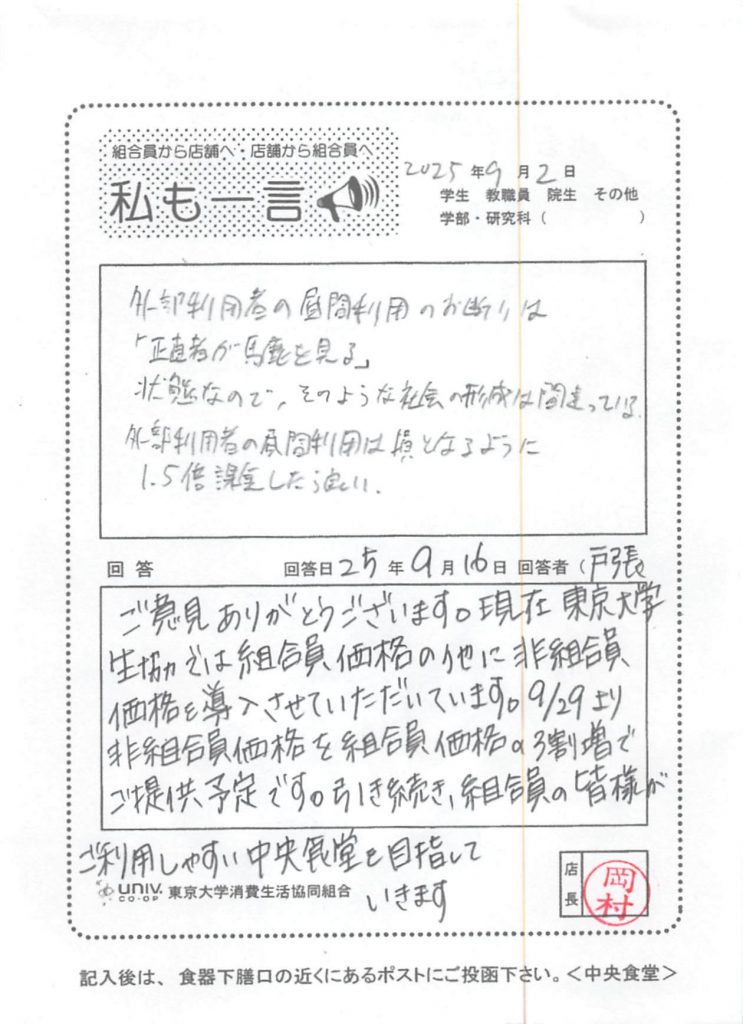 組合員から店舗へ・店舗から組合員へ
私も一言
2025年9月2日
学生 教職員 院生 その他
学部・研究科（ ）
外部利用者の昼間利用のお断りは
「正直者が馬鹿を見る」
状態なので、そのような社会の形成は間違っている。
外部利用者の昼間利用は損となるように
1.5倍課金したら良い.
回答 回答日25年9月16日 回答者（戸張
ご意見ありがとうございます。現在東京大学
生協では組合員価格の他に非組合員
価格を導入させていただいています。9/29より
非組合員価格を組合員価格の3割増で
ご提供予定です。引き続き、組合員の皆様が
ご利用しやすい中央食堂を目指して
いきます
UNIV. CO-OP 東京大学消費生活協同組合
店長 岡村
記入後は、食器下膳口の近くにあるポストにご投函下さい。＜中央食堂＞